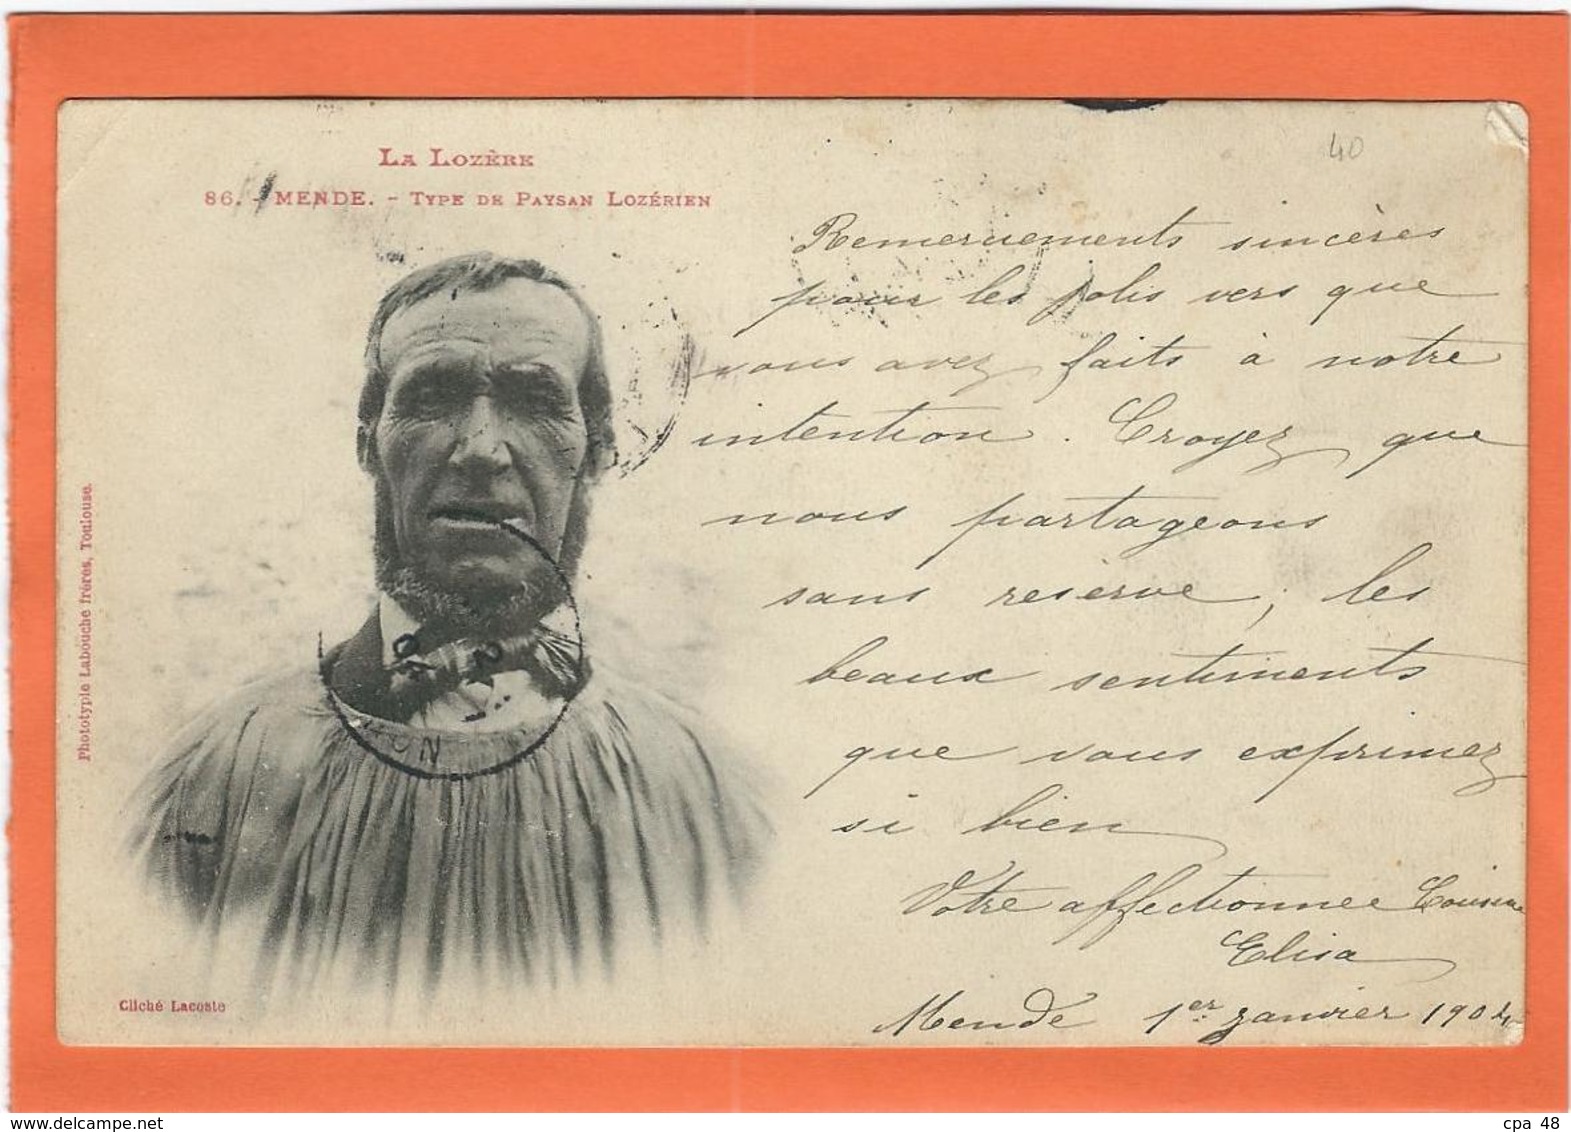 La Lozère
86. - MENDE. - Type de Paysan Lozérien
40
Remerciements sincères
pour les jolis vers que
vous avez faits à notre
intention. Croyez que
nous partageons
sans reserve, les
beaux sentiments
que vous exprimez
si bien
Votre affectionnée Cousine
Elisa
Mende 1er janvier 1904
Phototypie Labouche frères, Toulouse.
Cliché Lacoste
cpa 48